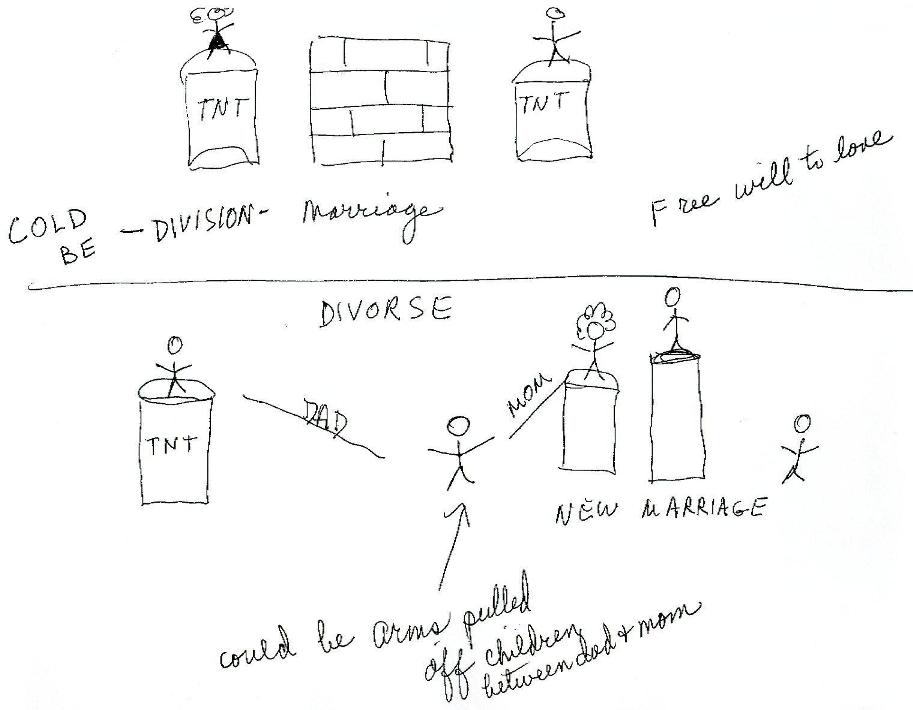 TNT
TNT
Free will to love
COLD
BE
- DIVISION - Marriage
DIVORSE
MOM
DAD
TNT
NEW MARRIAGE
could be arms pulled
off children
between dad + mom